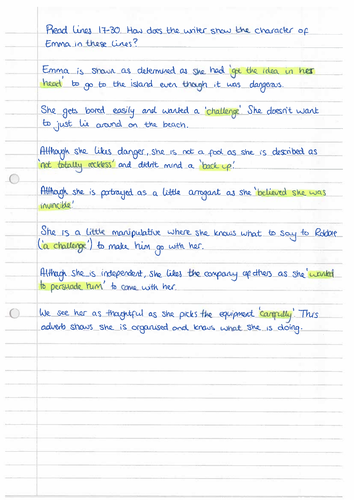 Read lines 17-30. How does the writer show the character of
Emma in these lines?
Emma is shown as determined as she had 'got the idea in her
head' to go to the island even though it was dangerous.
She gets bored easily and wanted a 'challenge' She doesn't want
to just lie around on the beach.
Although she likes danger, she is not a fool as she is described as
'not totally reckless' and didn't mind a 'back up'.
Although she is portrayed as a little arrogant as she 'believed she was
invincible'
She is a little manipulative where she knows what to say to Robbie
('a challenge') to make him go with her.
Although she is independent, she likes the company of others as she 'wanted
to persuade him' to come with her.
We see her as thoughtful as she picks the equipment 'carefully' This
adverb shows she is organised and knows what she is doing.